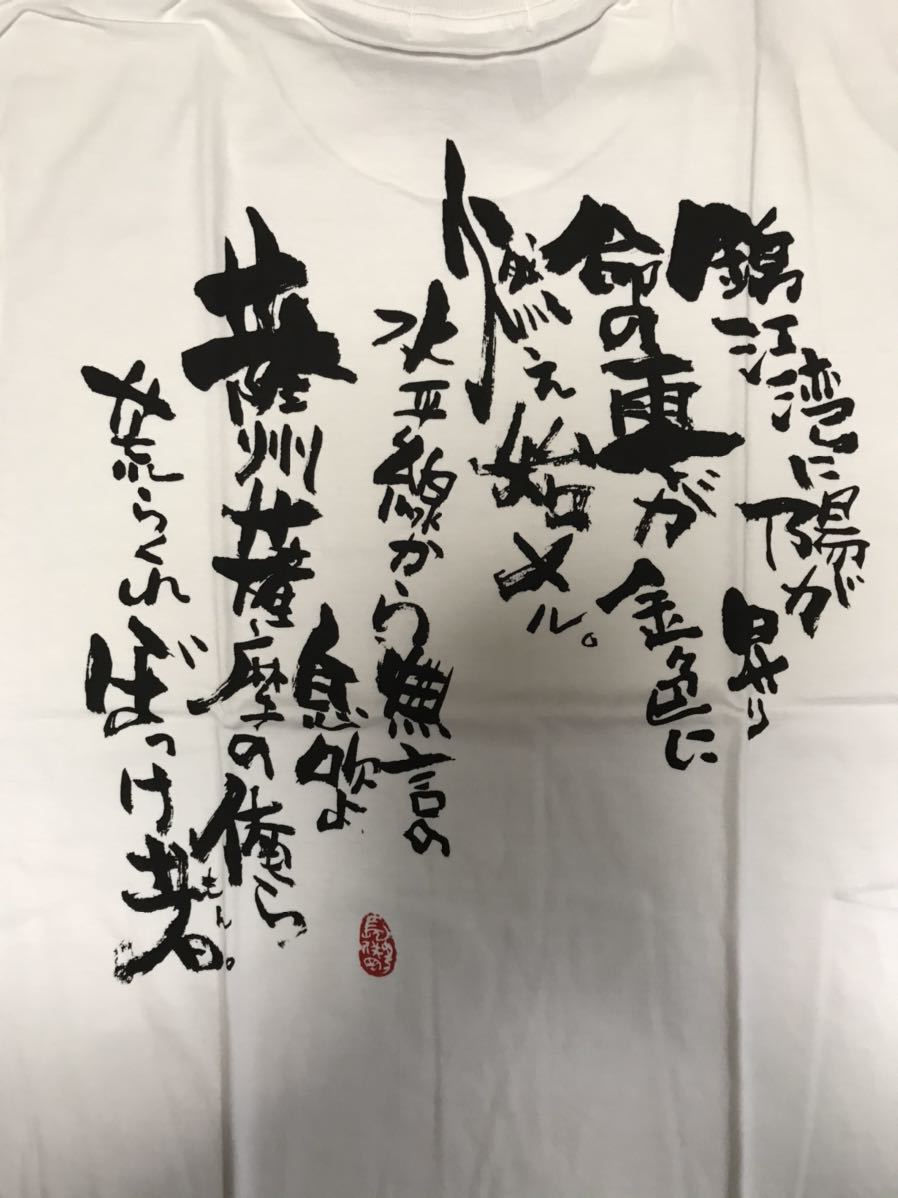 錦江湾に陽が昇り
命の車が金色に
燃え始メル。
水平線から無言の
息吹よ
薩州薩摩の俺ら
荒らくれぼっけ者もん。